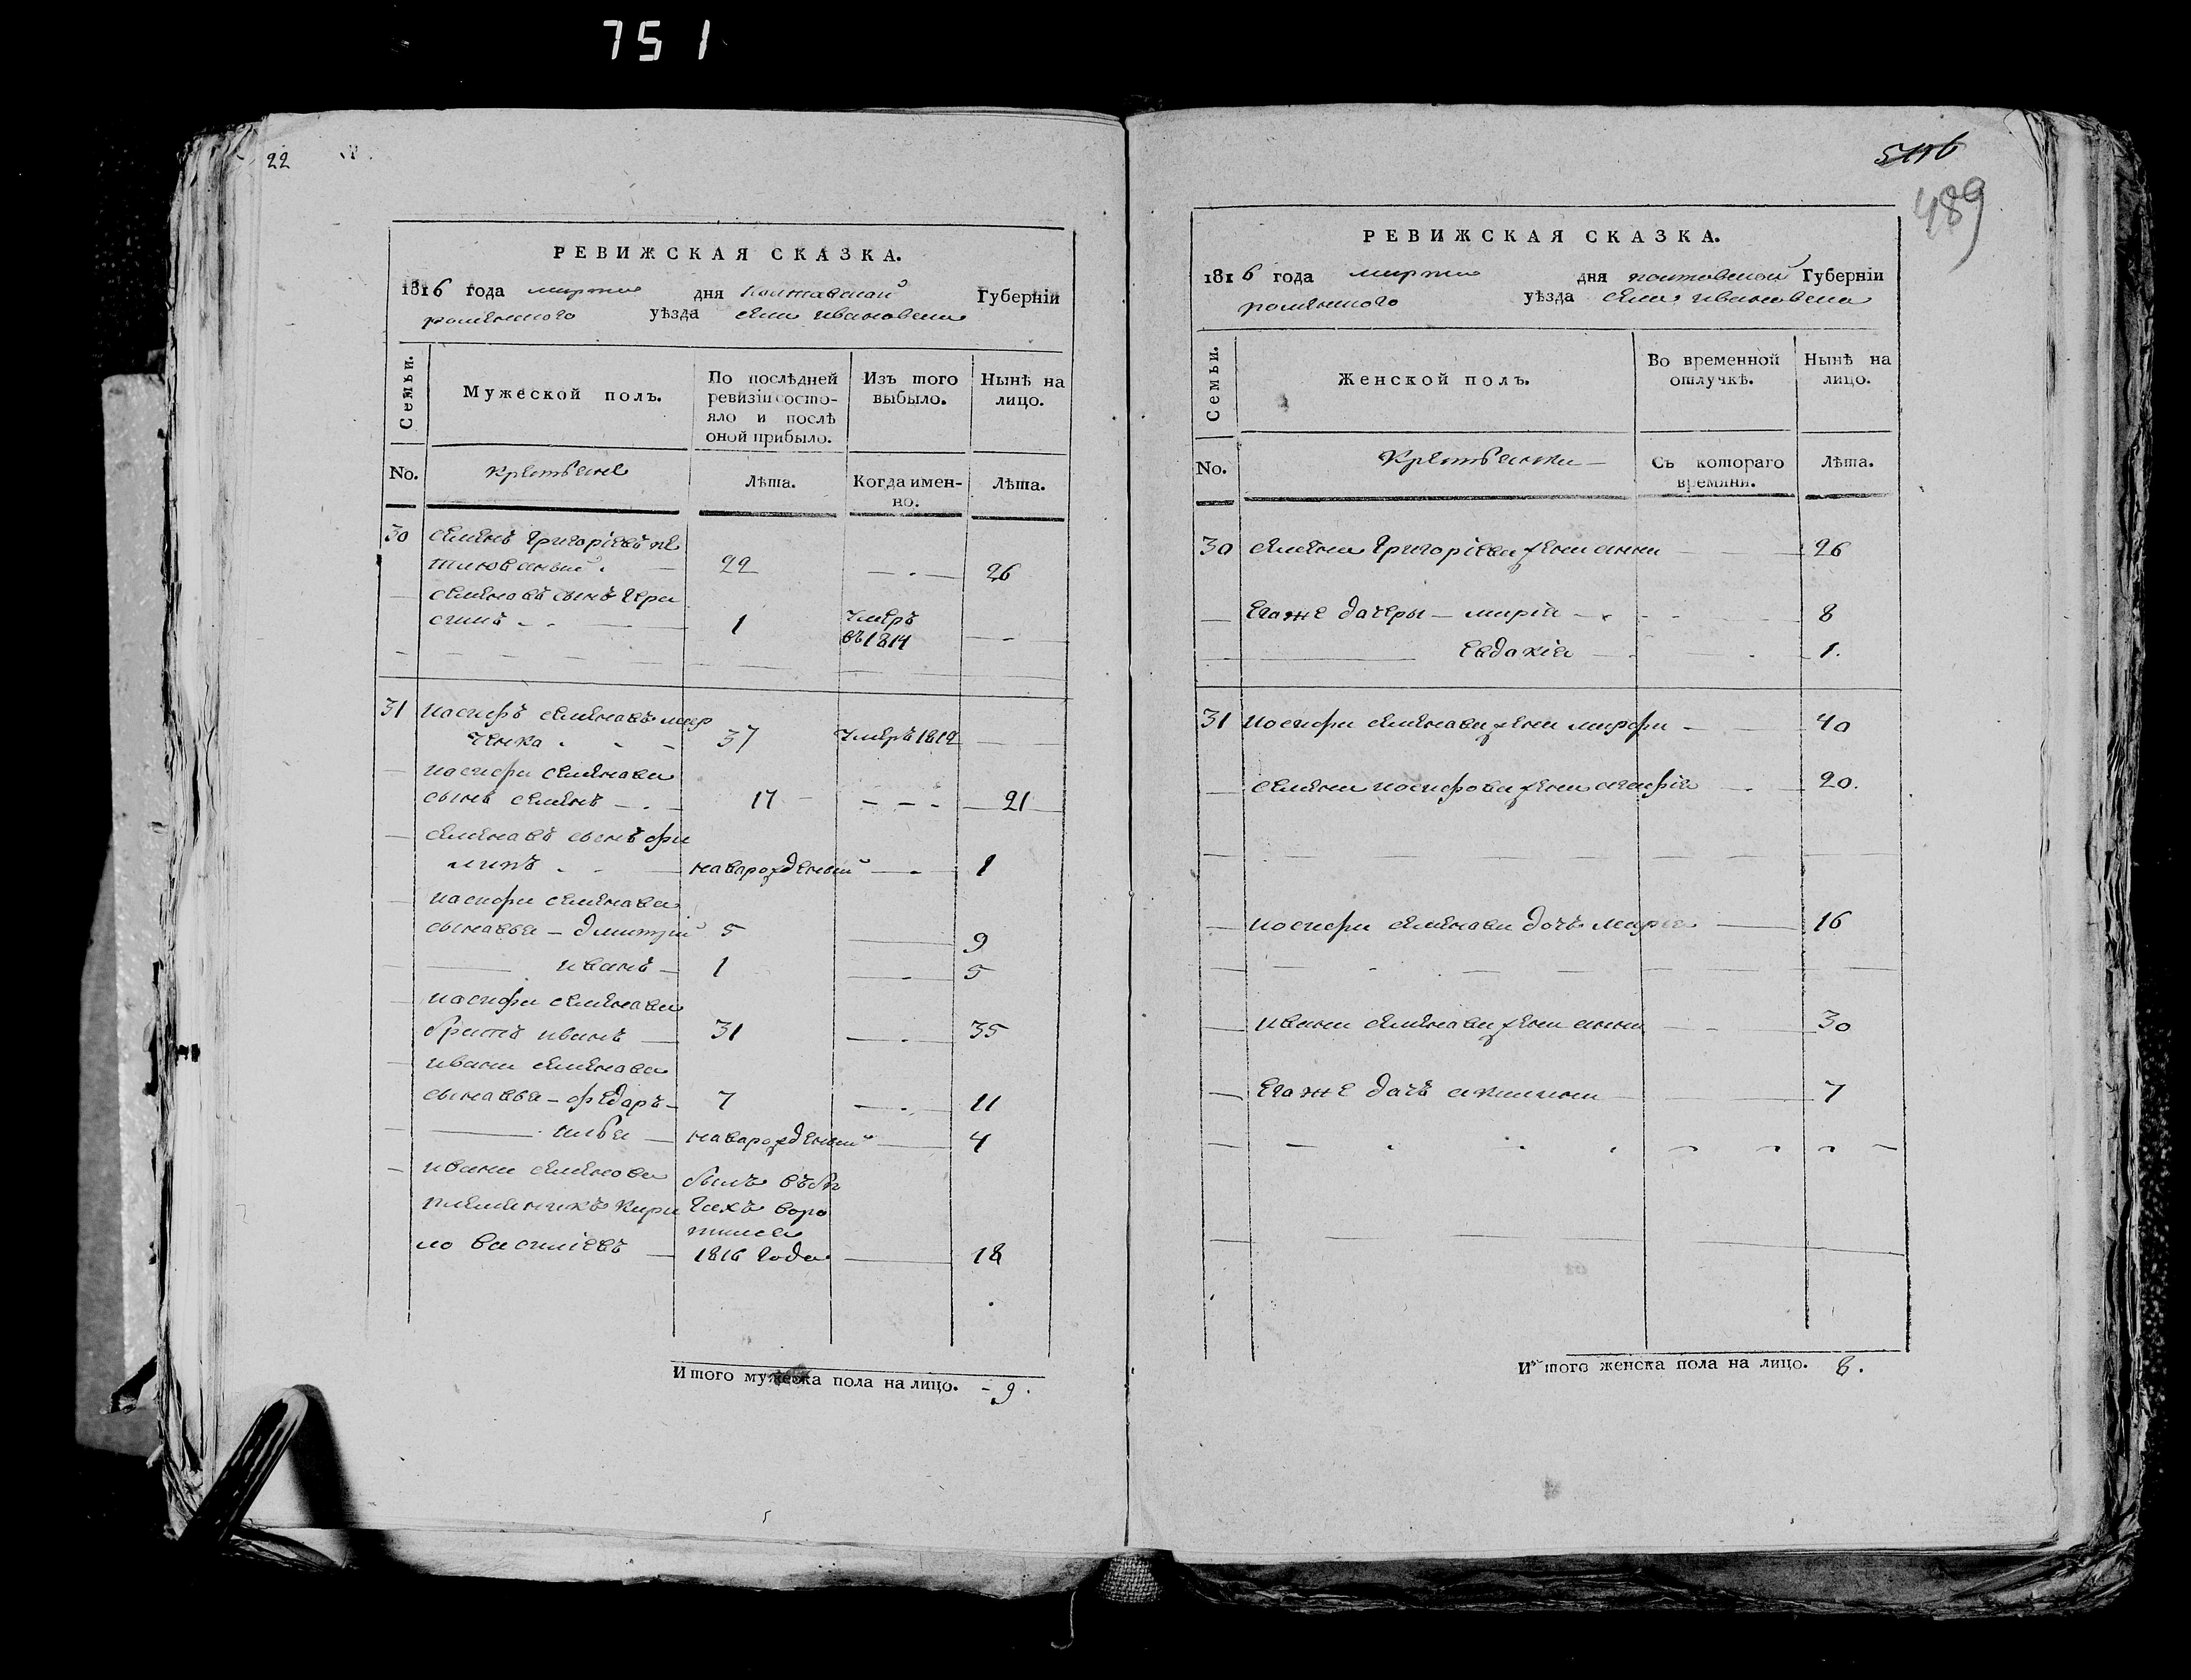 751
22
РЕВИЖСКАЯ СКАЗКА.
1816 года марта дня Полтавской Губерніи
роменского уѣзда села ивановки
Семьи.
Мужеской полъ.
По послѣдней ревизіи состо-
яло и послѣ
оной прибыло.
Изъ того
выбыло.
Нынѣ на
лицо.
No.
крестьяне
Лѣта.
Когда имен-
но.
Лѣта.
30 семенъ григоріевъ
22 26
семеновъ сынъ гера
симъ 1 умеръ
въ 1814
31 иосифъ семеновъ мир
ченко 37 умеръ 1812
иосифа семенова
сынъ семенъ 17 21
семеновъ сынъ фи
липъ новорожденный 1
иосифа семенова
сыновья дмитрій 5 9
иванъ 1 5
иосифа семенова
братъ иванъ 31 35
ивана семенова
сыновья федоръ 7 11
илья новорожденный 4
ивана семенова былъ въ бе
племенникъ кири гахъ воро
ло василіевъ тился
1816 года 18
Итого мужеска пола на лицо. 9.
5116
489
РЕВИЖСКАЯ СКАЗКА.
1816 года марта дня полтовской Губерніи
роменского уѣзда села ивановки
Семьи.
Женской полъ.
Во временной
отлучкѣ.
Нынѣ на
лицо.
No.
Крестьянки
Съ котораго
времяни.
Лѣта.
30 семена григоріева жена анна 26
егоже дочеры марія 8
евдокія 1.
31 иосифа семенова жена марфа 40
семена иосифова жена агафія 20.
иосифа семенова дочь марія 16
ивана семенова жена анна 30
егоже дочь акилина 7
Итого женска пола на лицо. 8.